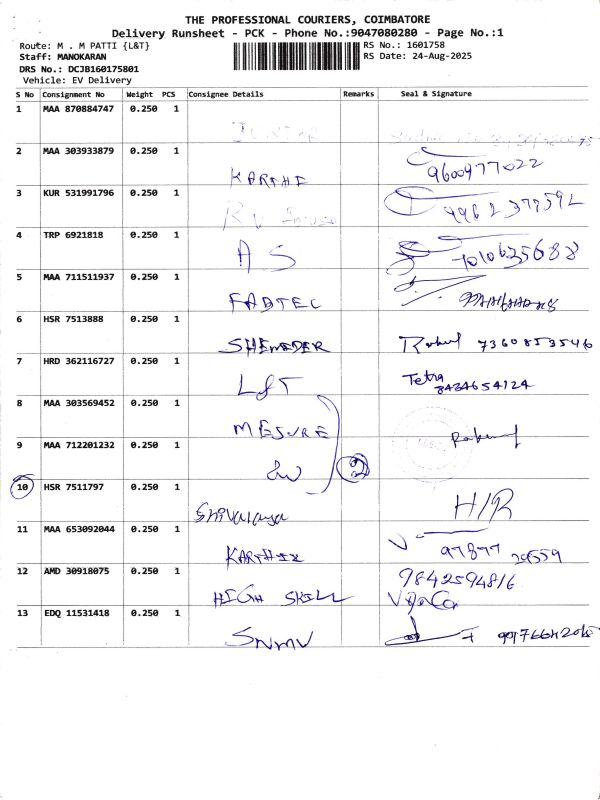 THE PROFESSIONAL COURIERS, COIMBATORE
Delivery Runsheet - PCK - Phone No.:9047080280 - Page No.:1
Route: M . M PATTI {L&T} RS No.: 1601758
Staff: MANOKARAN RS Date: 24-Aug-2025
DRS No.: DCJB160175801
Vehicle: EV Delivery
S No Consignment No Weight PCS Consignee Details Remarks Seal & Signature
1 MAA 870884747 0.250 1
2 MAA 303933879 0.250 1
KARTHI 9600977022
3 KUR 531991796 0.250 1
RV
4 TRP 6921818 0.250 1
AS 7010635688
5 MAA 711511937 0.250 1
FABTEC
6 HSR 7513888 0.250 1
SHEMEDER Rahul 7360853546
7 HRD 362116727 0.250 1
L&T Tetra 8434654124
8 MAA 303569452 0.250 1
MESURE
9 MAA 712201232 0.250 1
2
10 HSR 7511797 0.250 1
Srivalaya H/R
11 MAA 653092044 0.250 1
KARTHIK 97877 20559
12 AMD 30918075 0.250 1
HIGH SKILL 9842594816
13 EDQ 11531418 0.250 1
SNMV